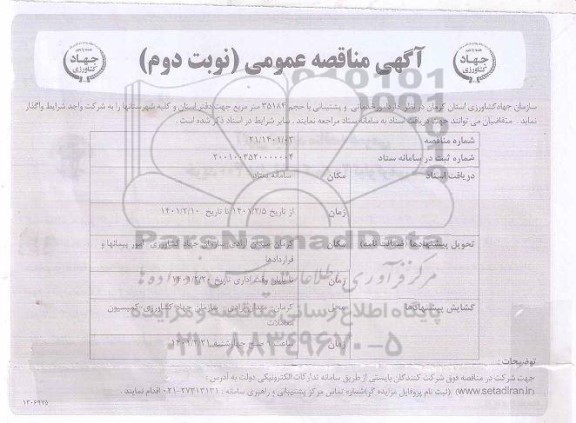 آگهی مناقصه عمومی (نوبت دوم)
جهاد
کشاورزی
جهاد
کشاورزی
سازمان جهادکشاورزی استان کرمان امور خدماتی و پشتیبانی با حجم ۳۵۱۸۴ متر مربع جهت دفتر استان و کلیه شهرستانها را به شرکت واجد شرایط واگذار
نماید متقاضیان می توانند جهت دریافت اسناد به سامانه ستاد مراجعه نمایند . سایر شرایط در اسناد ذکر شده است .
شماره مناقصه ۲۱/۱۴۰۱/۰۳
شماره ثبت در سامانه ستاد ۲۰۰۱۰۰۳۵۲۰۰۰۰۰۰۴
دریافت اسناد مکان سامانه ستاد
زمان از تاریخ ۱۴۰۱/۲/۵ تا تاریخ ۱۴۰۱/۲/۱۰
تحویل پیشنهادها (ضمانت نامه) مکان کرمان میدان آزادی سازمان جهاد کشاورزی امور پیمانها و
قراردادها
زمان پایان وقت اداری تاریخ
گشایش پیشنهادها محل کرمان میدان آزادی سازمان جهاد کشاورزی کمیسیون
معاملات
زمان ساعت ۹ صبح چهارشنبه
ParsNamadData
مرکز فرآوری اطلاعات پارس نماد داده ها
پایگاه اطلاع رسانی مناقصه و مزایده
۰۲۱-۸۸۳۴۹۶۷۰-۵
توضیحات :
جهت شرکت در مناقصه فوق شرکت کنندگان بایستی از طریق سامانه تدارکات الکترونیکی دولت به آدرس :
(www.setadiran.ir) (ثبت نام وپروفایل مزایده گر)شماره تماس مرکز پشتیبانی و راهبری سامانه : ۰۲۱-۲۷۳۱۳۱۳۱ اقدام نمایند
۱۳۰۶۹۷۵